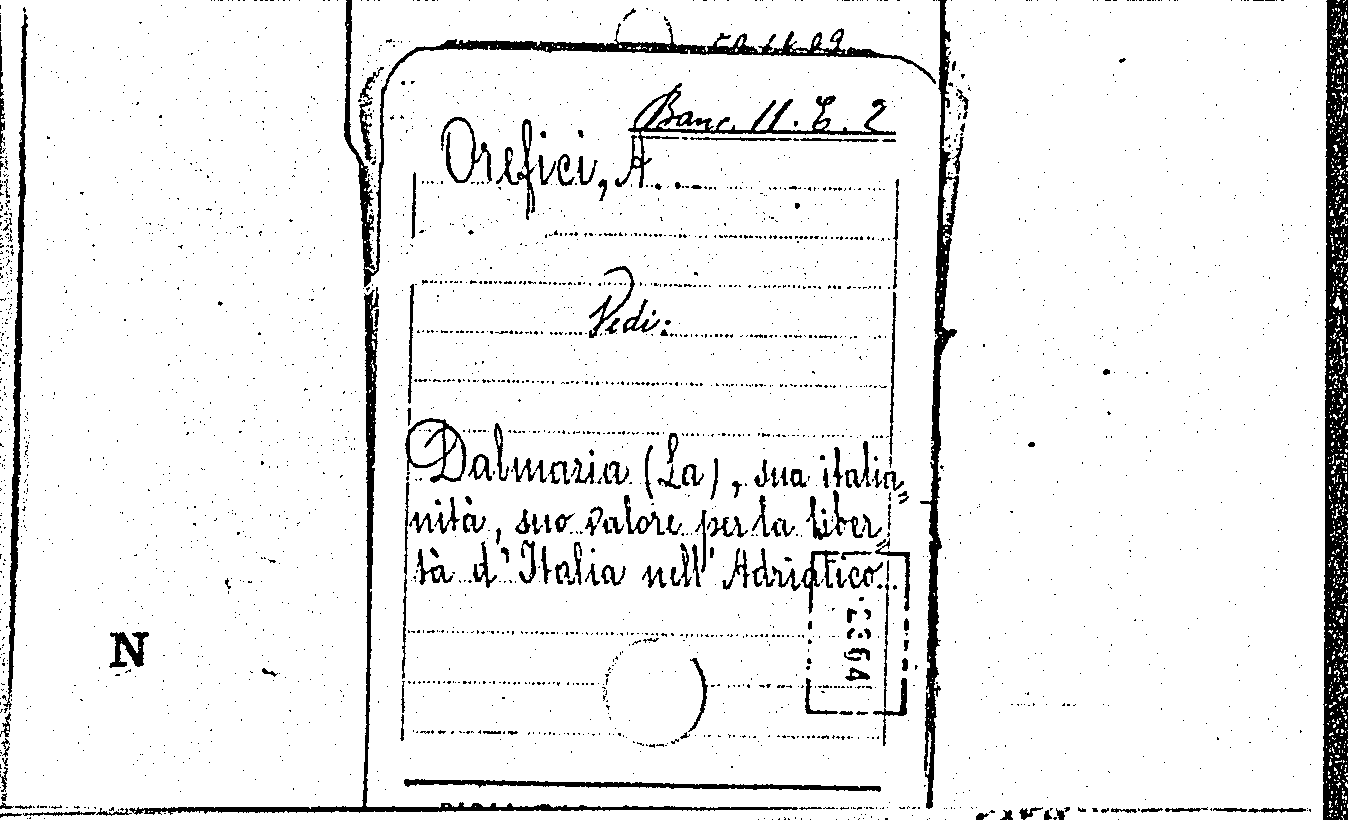 Banc. 11. E. 2
Orefici, A.
Vedi:
Dalmazia (La), sua italia„
nità, suo valore per la liber„
tà d'Italia nell'Adriatico.
N